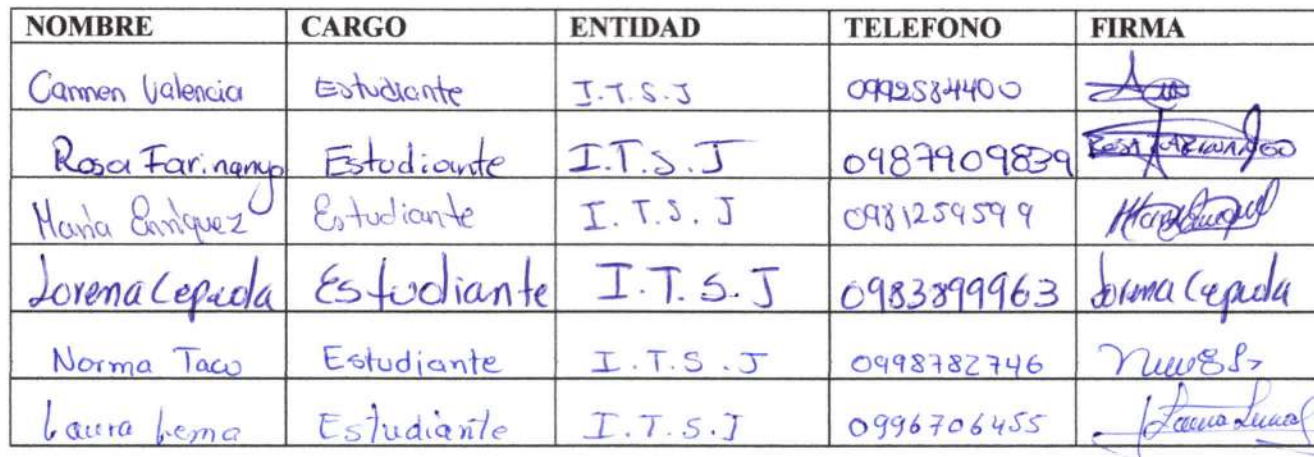 NOMBRE CARGO ENTIDAD TELEFONO FIRMA
Carmen Valencia Estudiante I.T.S.J 0992584400
Rosa Farinango Estudiante I.T.S.J 0987909839 ROSA FARINANGO
María Enríquez Estudiante I.T.S.J 0981259599
Lorena Cepeda Estudiante I.T.S.J 0983899963 Lorena Cepeda
Norma Taco Estudiante I.T.S.J 0998782746
Laura Lema Estudiante I.T.S.J 0996706455 Laura Lema